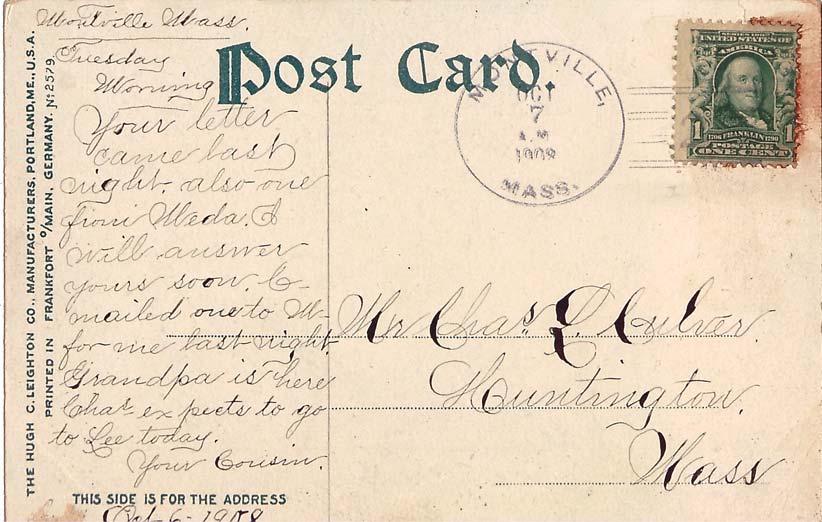 Montville Mass.
Tuesday
Morning
Your letter
came last
night, also one
from Meda. I
will answer
yours soon. C-
mailed one to M-
for me last night.
Grandpa is here
Chas expects to go
to Lee today.
Your Cousin.
Post Card.
MONTVILLE,
OCT
7
A.M.
1908
MASS.
SERIES 1902
UNITED STATES OF
AMERICA
1706 FRANKLIN 1790
1 POSTAGE 1
ONE CENT
Mr Chas. L. Culver.
Huntington,
Mass
THE HUGH C. LEIGHTON CO., MANUFACTURERS, PORTLAND, ME., U.S.A.
PRINTED IN FRANKFORT o/MAIN, GERMANY. No 2579
THIS SIDE IS FOR THE ADDRESS
Oct-6-1908